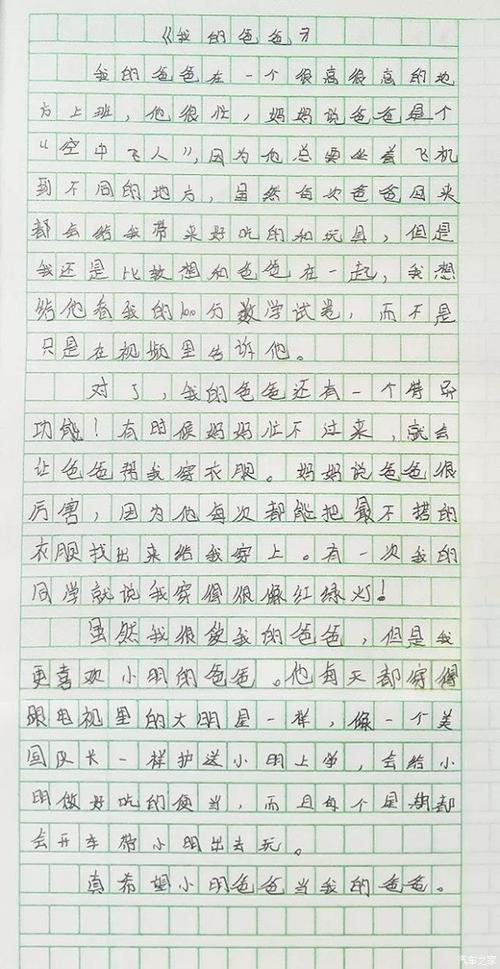 《我的爸爸》
我的爸爸在一个很高很高的地
方上班，他很忙，妈妈说爸爸是个
“空中飞人”，因为他总要坐着飞机
到不同的地方，虽然每次爸爸回来
都会给我带来好吃的和玩具，但是
我还是比较想和爸爸在一起，我想
给他看我的100分数学试卷，而不是
只是在视频里告诉他。
对了，我的爸爸还有一个特异
功能！有时候妈妈忙不过来，就会
让爸爸帮我穿衣服。妈妈说爸爸很
厉害，因为他每次都能把最不搭的
衣服找出来给我穿上。有一次我的
同学就说我穿得很像红绿灯！
虽然我很爱我的爸爸，但是我
更喜欢小明的爸爸。他每天都穿得
跟电视里的大明星一样，像一个美
国队长一样护送小明上学，会给小
明做好吃的便当，而且每个星期都
会开车带小明出去玩。
真希望小明爸爸当我的爸爸。
汽车之家